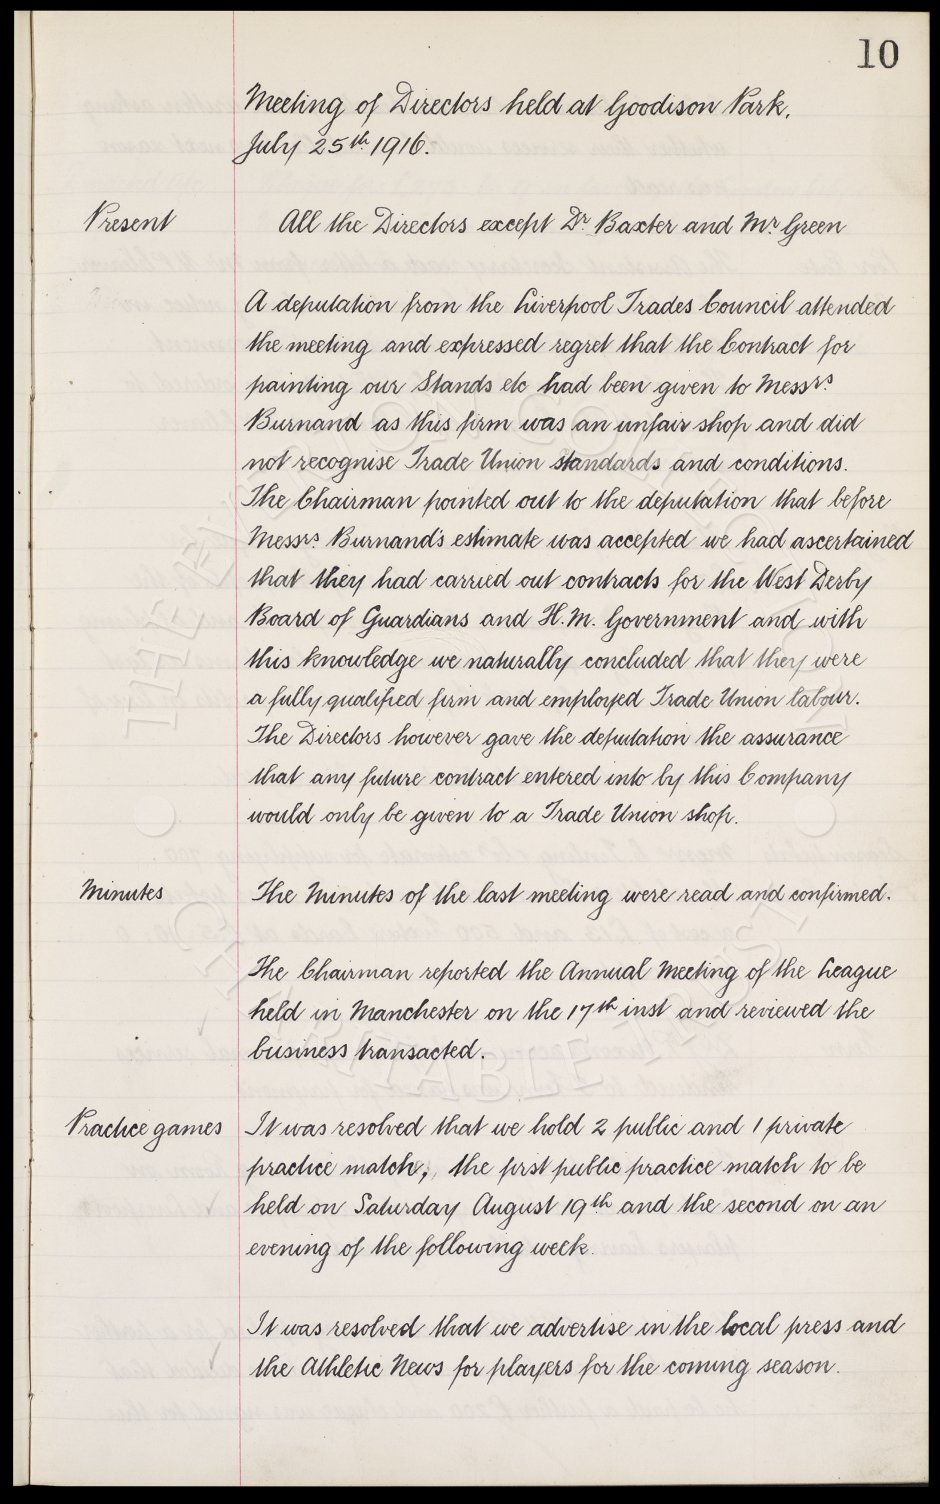 10
Meeting of Directors held at Goodison Park,
July 25th 1916.
Present
All the Directors except Dr. Baxter and Mr. Green
A deputation from the Liverpool Trades Council attended
the meeting and expressed regret that the Contract for
painting our Stands etc had been given to Messrs
Burnand as this firm was an unfair shop and did
not recognise Trade Union standards and conditions.
The Chairman pointed out to the deputation that before
Messrs. Burnand's estimate was accepted we had ascertained
that they had carried out contracts for the West Derby
Board of Guardians and H.M. Government and with
this knowledge we naturally concluded that they were
a fully qualified firm and employed Trade Union labour.
The Directors however gave the deputation the assurance
that any future contract entered into by this Company
would only be given to a Trade Union shop.
Minutes
The Minutes of the last meeting were read and confirmed.
The Chairman reported the Annual Meeting of the League
held in Manchester on the 17th inst and reviewed the
business transacted.
Practice games
It was resolved that we hold 2 public and 1 private
practice match, the first public practice match to be
held on Saturday August 19th and the second on an
evening of the following week.
It was resolved that we advertise in the local press and
the Athletic News for players for the coming season.
THE EVERTON COLLECTION
CHARITABLE TRUST